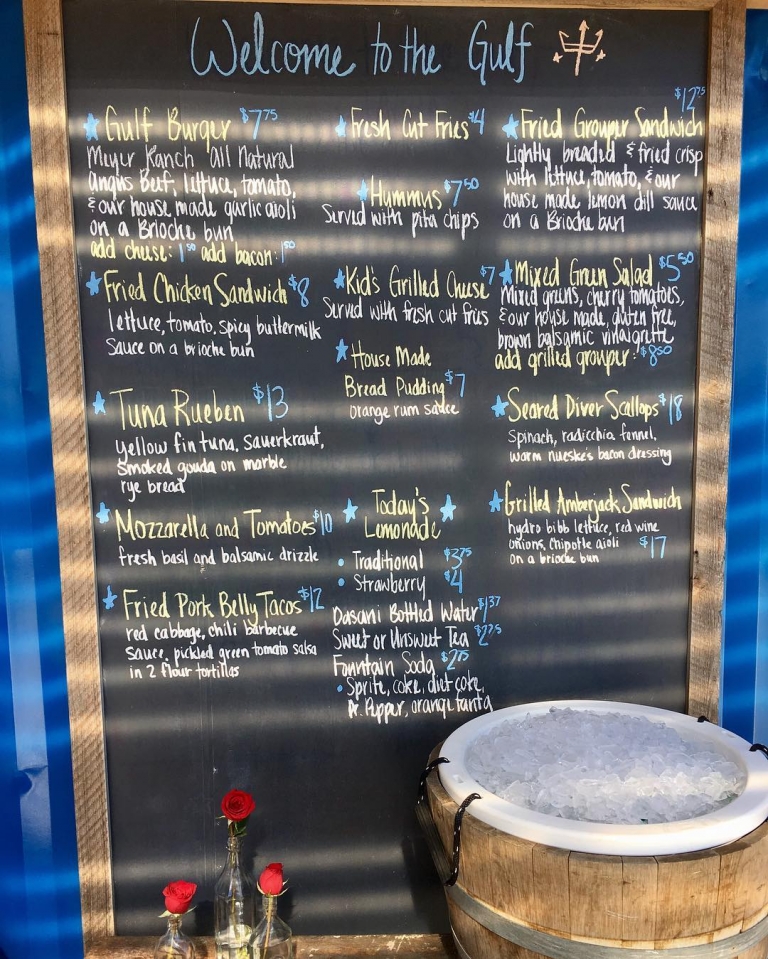 Welcome to the Gulf
Gulf Burger $7.75
Meyer Ranch all Natural
angus Beef, lettuce, tomato,
& our house made garlic aioli
on a Brioche bun
add cheese: 1.50 add bacon: 1.50
Fried Chicken Sandwich $8
lettuce, tomato, spicy buttermilk
sauce on a brioche bun
Tuna Rueben $13
yellow fin tuna, sauerkraut,
smoked gouda on marble
rye bread
Mozzarella and Tomatoes $10
fresh basil and balsamic drizzle
Fried Pork Belly Tacos $12
red cabbage, chili barbecue
sauce, pickled green tomato salsa
in 2 flour tortillas
Fresh Cut Fries $4
Hummus $7.50
Served with pita chips
Kid's Grilled Cheese $7
Served with fresh cut fries
House Made
Bread Pudding $7
orange rum sauce
Today's
Lemonade
• Traditional $3.75
• Strawberry $4
Dasani Bottled Water $1.37
Sweet or Unsweet Tea $2.75
Fountain Soda $2.75
• Sprite, coke, diet coke,
Dr. Pepper, orange fanta
$12.75
Fried Grouper Sandwich
Lightly breaded & fried crisp
with lettuce, tomato, & our
house made lemon dill sauce
on a Brioche bun
Mixed Green Salad $5.50
Mixed greens, cherry tomatoes,
& our house made, gluten free,
brown balsamic vinaigrette
add grilled grouper: $8.50
Seared Diver Scallops $18
Spinach, radicchio, fennel,
warm nueske's bacon dressing
Grilled Amberjack Sandwich
hydro bibb lettuce, red wine
onions, chipotle aioli
on a brioche bun $17